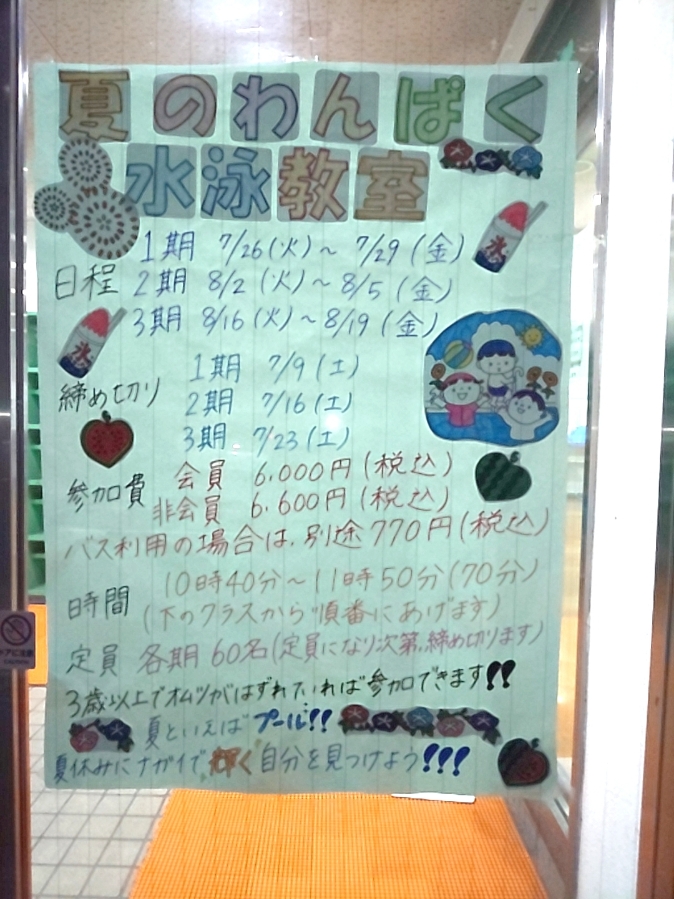 夏のわんぱく
水泳教室
氷
日程
1期 7/26(火)~ 7/29(金)
2期 8/2(火)~ 8/5(金)
3期 8/16(火)~8/19(金)
氷
締め切り
1期 7/9(土)
2期 7/16(土)
3期 7/23(土)
参加費
会員 6.000円(税込)
非会員 6.600円(税込)
バス利用の場合は、別途770円(税込)
時間
10時40分~11時50分(70分)
(下のクラスから順番にあげます)
定員 各期60名(定員になり次第、締め切ります)
3歳以上でオムツがはずれていれば参加できます!!
夏といえばプール!!
夏休みにナガイで輝く自分を見つけよう!!!